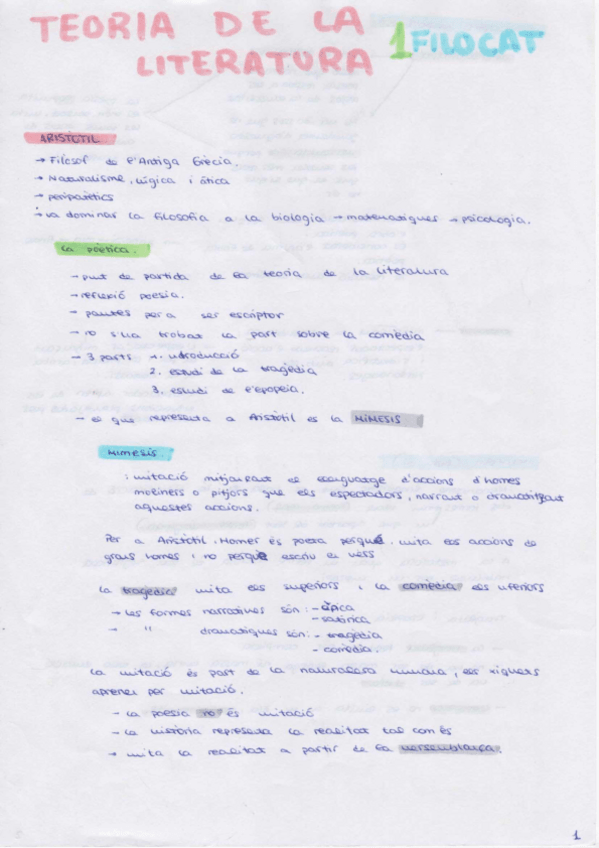 TEORIA DE LA
LITERATURA
1 FILOCAT
ARISTÒTIL
→ Filòsof de l'Antiga Grècia.
→ Naturalisme, lògica i ètica
→ peripatètics
→ va dominar la filosofia a la biologia → matemàtiques → psicologia.
La poètica.
→ punt de partida de la teoria de la literatura
→ reflexió poesia.
→ pautes per a ser escriptor
→ no s'ha trobat la part sobre la comèdia
→ 3 parts 1. introducció
2. estudi de la tragèdia
3. estudi de l'epopeia.
→ el que representa a Aristòtil és la MIMESIS
MIMESIS
: imitació mitjançant el llenguatge d'accions d'homes
millors o pitjors que els espectadors, narrant o dramatitzant
aquestes accions.
Per a Aristòtil, Homer és poeta perquè imita les accions de
grans homes i no perquè escriu en vers
La tragèdia imita els superiors i la comèdia els inferiors
→ les formes narratives són: - èpica
- satírica
→ " dramàtiques són: - tragèdia
- comèdia.
La imitació és part de la naturalesa humana, els xiquets
aprenen per imitació.
- la poesia no és imitació
- la història representa la realitat tal com és
→ imita la realitat a partir de la versemblança.
1